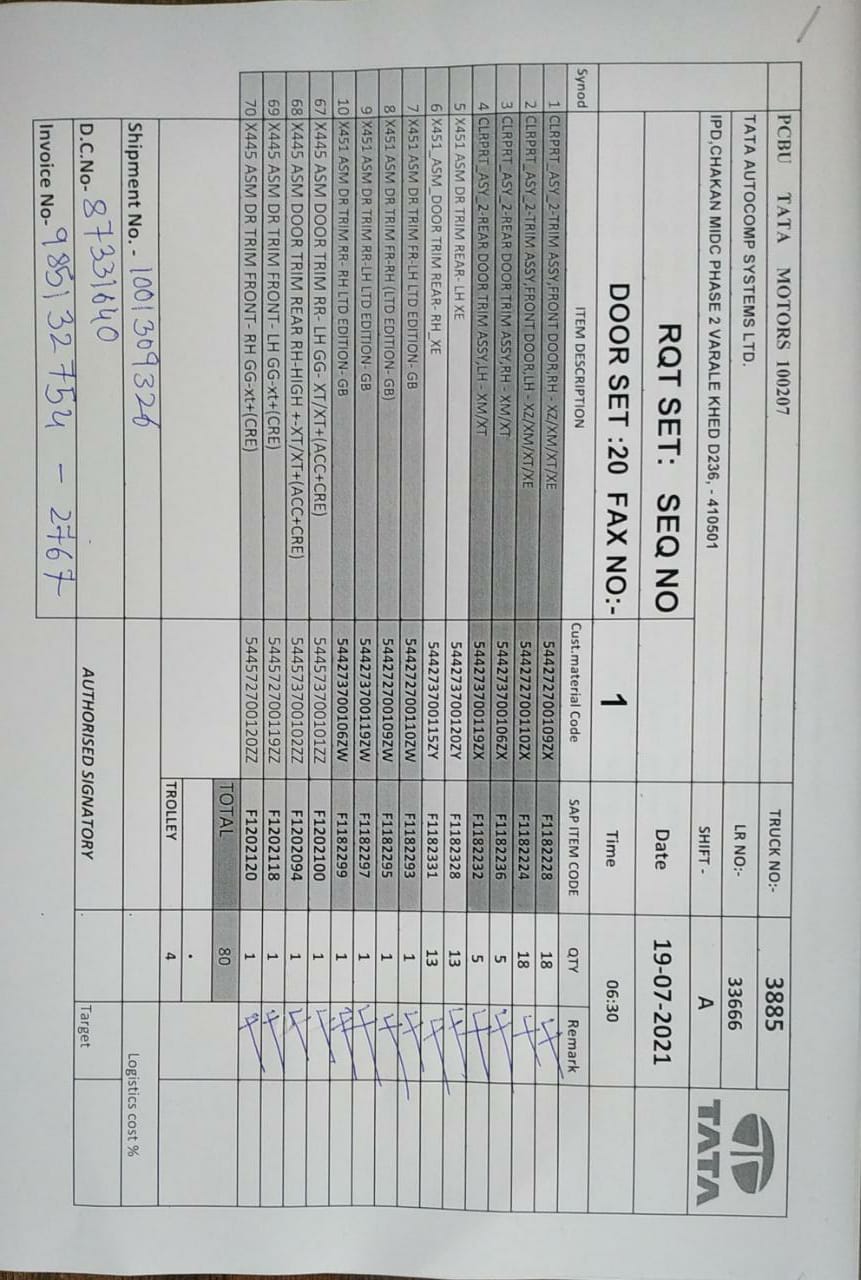 PCBU TATA MOTORS 100207 TRUCK NO:- 3885
TATA AUTOCOMP SYSTEMS LTD. LR NO:- 33666
IPD,CHAKAN MIDC PHASE 2 VARALE KHED D236, - 410501 SHIFT - A
TATA
RQT SET: SEQ NO Date 19-07-2021
DOOR SET :20 FAX NO:- 1 Time 06:30
Synod ITEM DESCRIPTION Cust.material Code SAP ITEM CODE QTY Remark
1 CLRPRT_ASY_2-TRIM ASSY,FRONT DOOR,RH - XZ/XM/XT/XE 544272700109ZX F1182228 18
2 CLRPRT_ASY_2-TRIM ASSY,FRONT DOOR,LH - XZ/XM/XT/XE 544272700110ZX F1182224 18
3 CLRPRT_ASY_2-REAR DOOR TRIM ASSY,RH - XM/XT 544273700106ZX F1182236 5
4 CLRPRT_ASY_2-REAR DOOR TRIM ASSY,LH - XM/XT 544273700119ZX F1182232 5
5 X451 ASM DR TRIM REAR- LH XE 544273700120ZY F1182328 13
6 X451_ASM_DOOR TRIM REAR- RH_XE 544273700115ZY F1182331 13
7 X451 ASM DR TRIM FR-LH LTD EDITION- GB 544272700110ZW F1182293 1
8 X451 ASM DR TRIM FR-RH (LTD EDITION- GB) 544272700109ZW F1182295 1
9 X451 ASM DR TRIM RR-LH LTD EDITION- GB 544273700119ZW F1182297 1
10 X451 ASM DR TRIM RR- RH LTD EDITION- GB 544273700106ZW F1182299 1
67 X445 ASM DOOR TRIM RR- LH GG- XT/XT+(ACC+CRE) 544573700101ZZ F1202100 1
68 X445 ASM DOOR TRIM REAR RH-HIGH +-XT/XT+(ACC+CRE) 544573700102ZZ F1202094 1
69 X445 ASM DR TRIM FRONT- LH GG-xt+(CRE) 544572700119ZZ F1202118 1
70 X445 ASM DR TRIM FRONT- RH GG-xt+(CRE) 544572700120ZZ F1202120 1
TOTAL 80
TROLLEY 4
Shipment No. - 1001309326 Logistics cost %
D.C.No- 87331640 AUTHORISED SIGNATORY Target
Invoice No- 985132754 - 2767